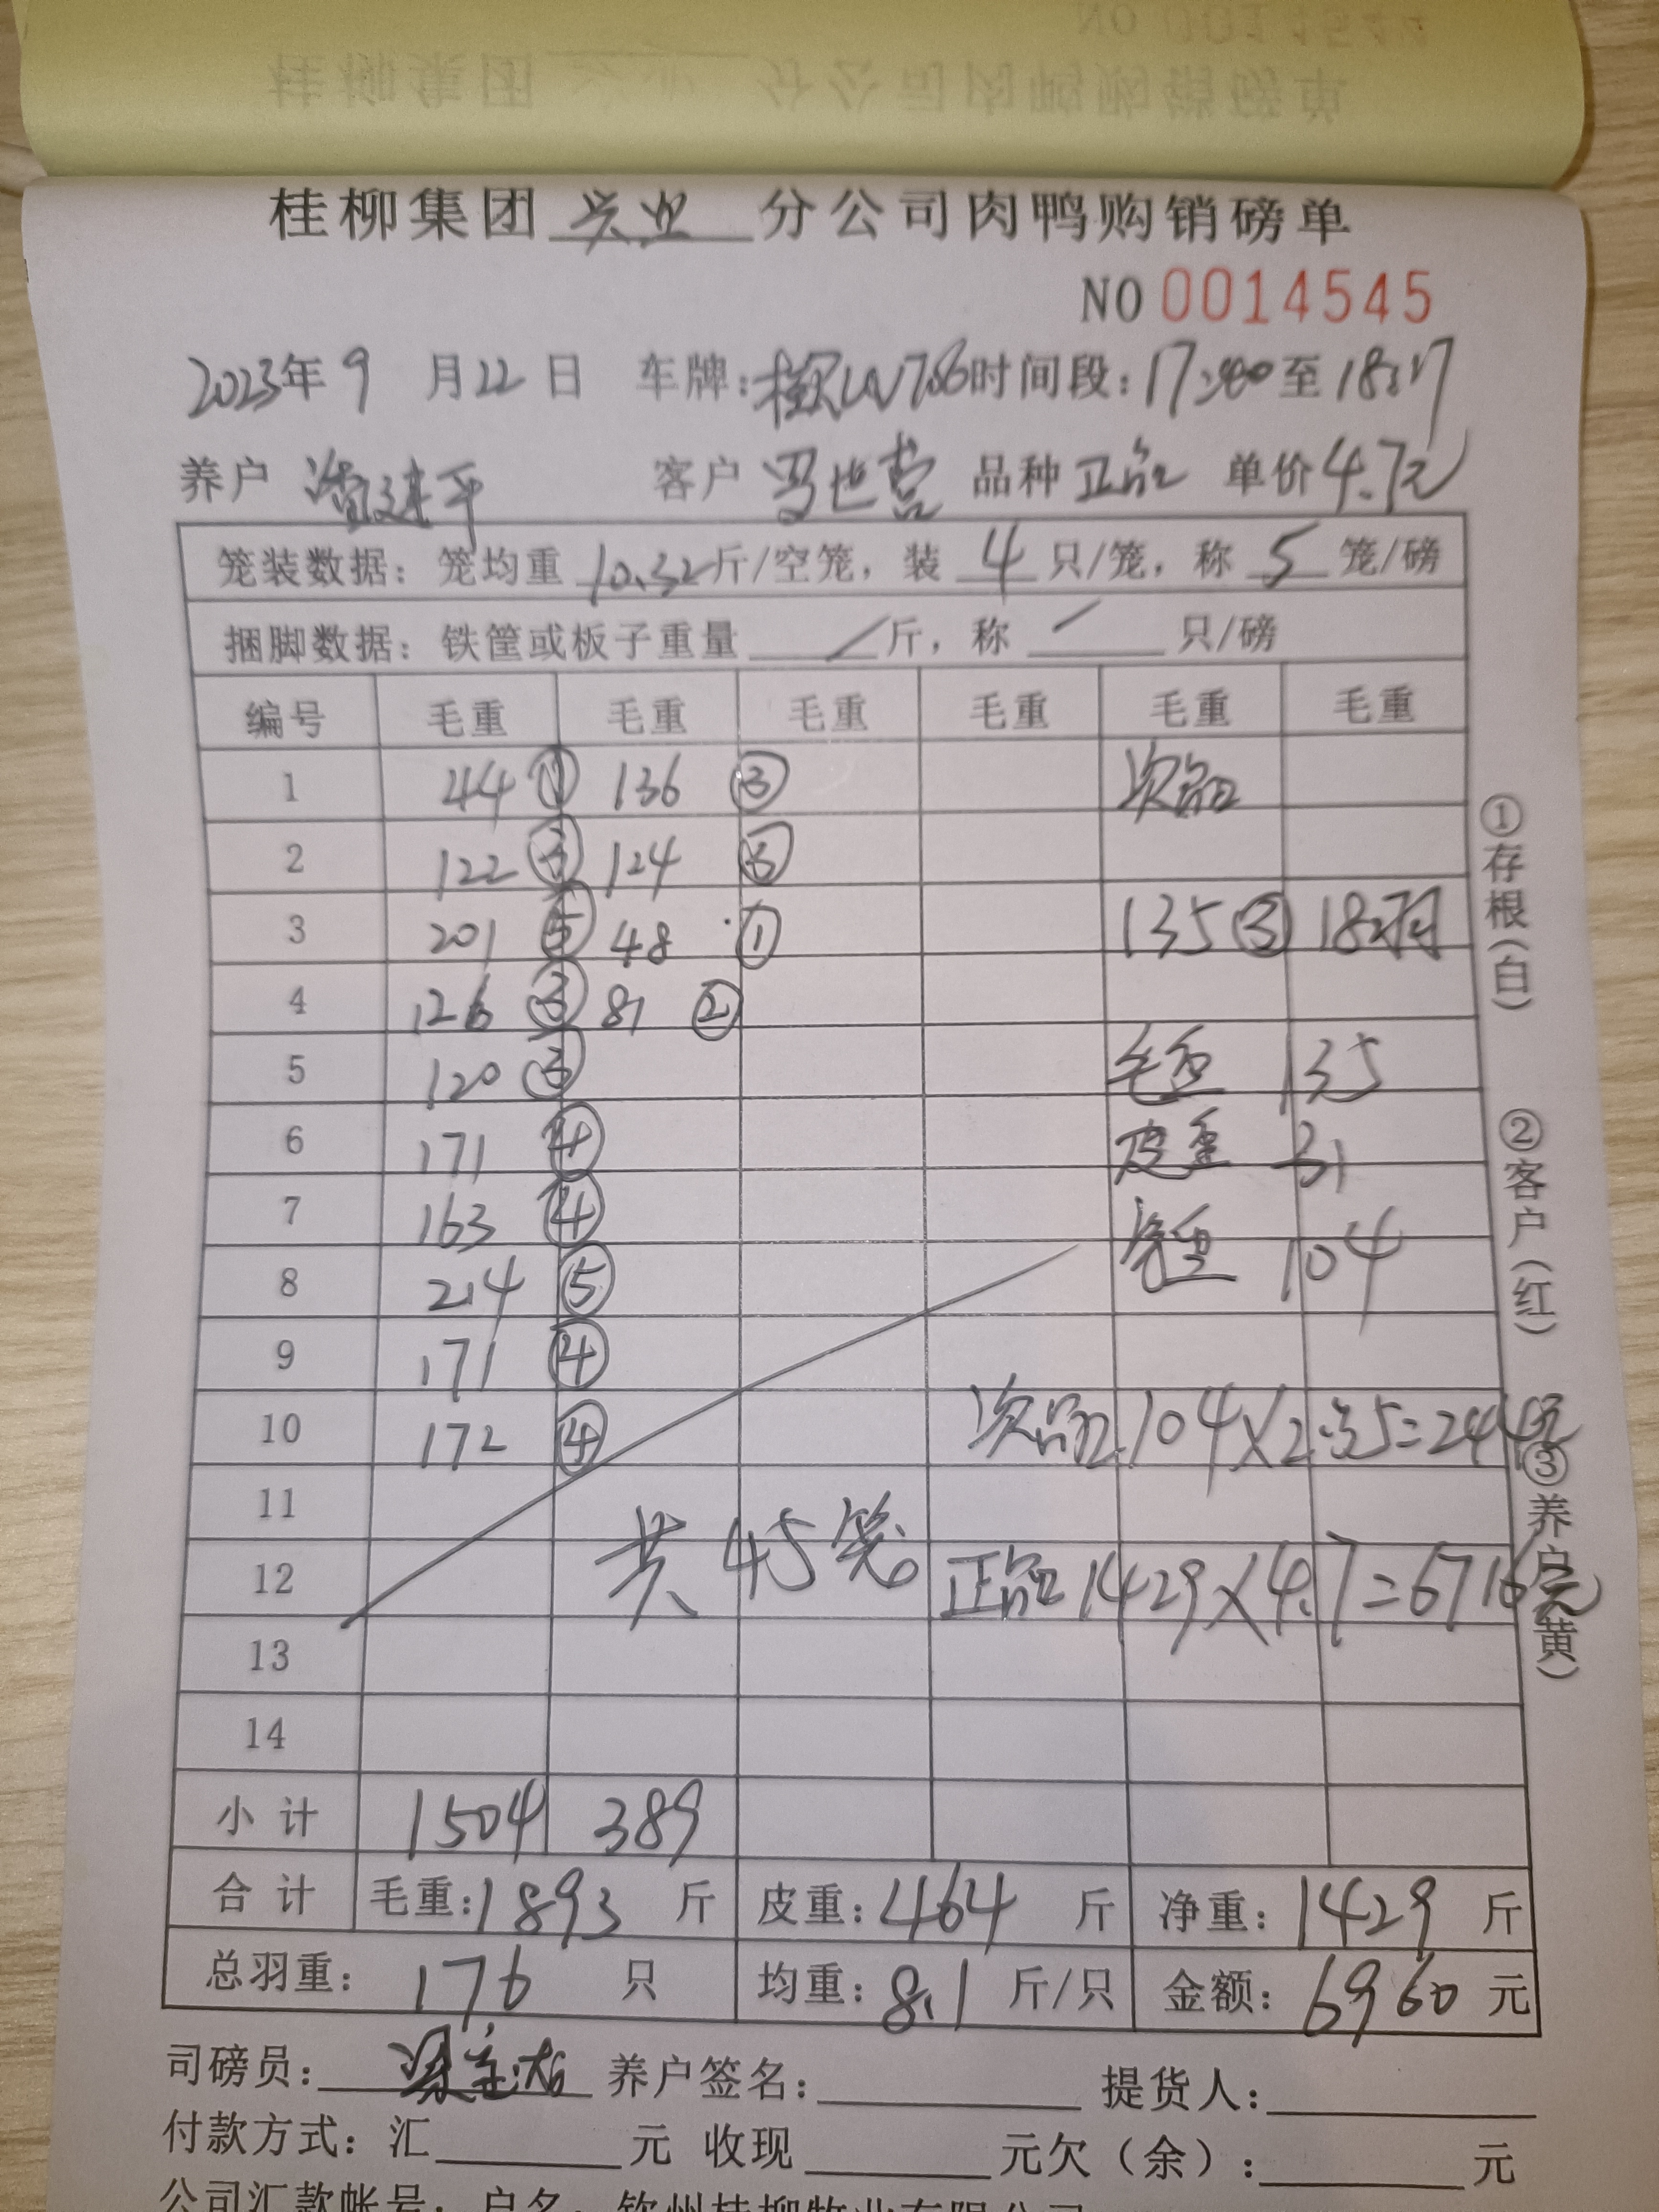 桂柳集团 兴业 分公司肉鸭购销磅单
NO 0014545
2023年 9 月 22 日 车牌: 时间段: 17:00 至 18:17
养户 潘建平 客户 冯世营 品种 正品 单价 4.7元
笼装数据: 笼均重 10.32 斤/空笼, 装 4 只/笼, 称 5 笼/磅
捆脚数据: 铁筐或板子重量 / 斤, 称 / 只/磅
编号 毛重 毛重 毛重 毛重 毛重 毛重
1 44 ① 136 ③ 次品
2 122 ③ 124 ③
3 201 ⑤ 48 ① 135 ③ 18羽
4 126 ③ 81 ②
5 120 ③ 毛重 135
6 171 ④ 皮重 31
7 163 ④ 净重 104
8 214 ⑤
9 171 ④
10 172 ④ 次品 104×2.35=244元
11
12 共45笼 正品 1429×4.7=6716元
13
14
小计 1504 389
合计 毛重: 1893 斤 皮重: 464 斤 净重: 1429 斤
总羽重: 176 只 均重: 8.1 斤/只 金额: 6960 元
司磅员: 养户签名: 提货人:
付款方式: 汇 元 收现 元欠(余): 元
公司汇款帐号: 户名: 钦州桂柳牧业有限公司
①存根(白)
②客户(红)
③养户(黄)